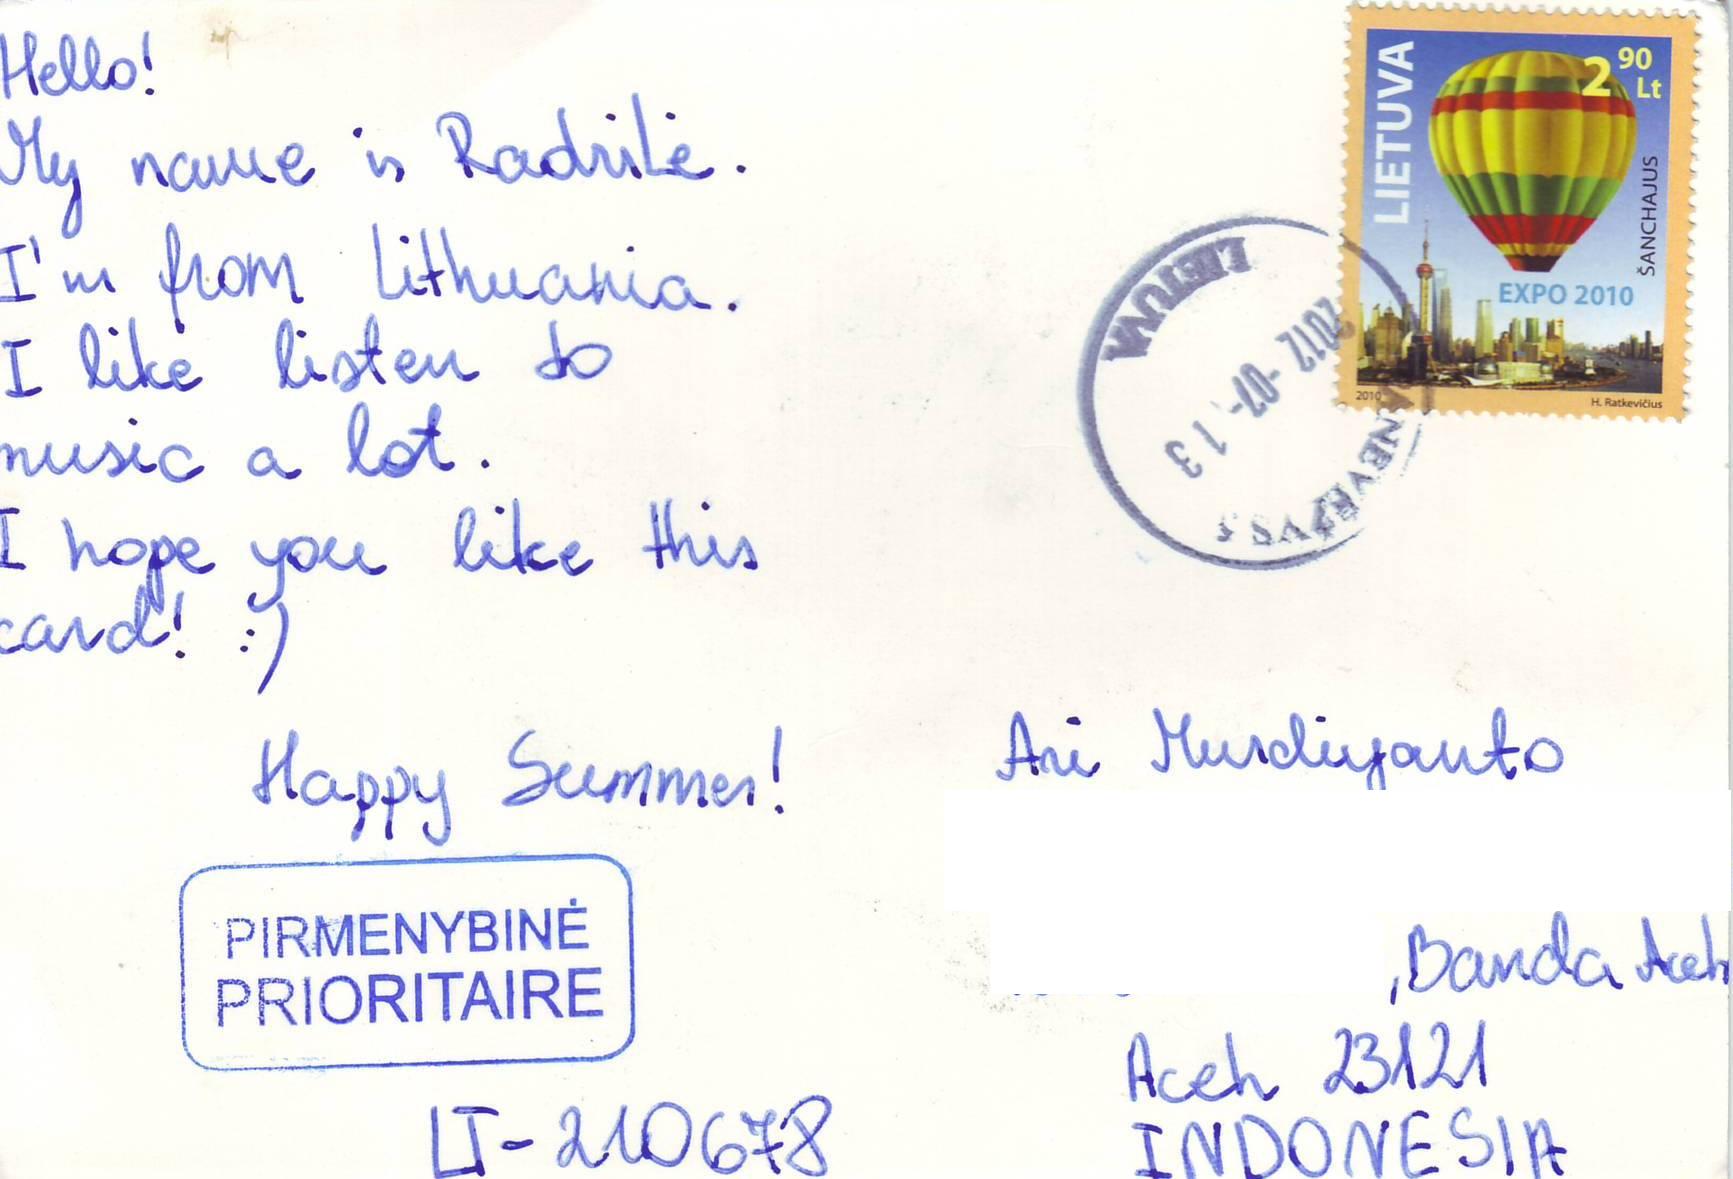 Hello!
My name is Radvilė.
I'm from Lithuania.
I like listen to
music a lot.
I hope you like this
card! :)
Happy Summer!
PIRMENYBINĖ
PRIORITAIRE
LT-210678
LIETUVA
2 90 Lt
ŠANCHAJUS
EXPO 2010
2010 H. Ratkevičius
LIETUVA
2012-07-13
Ari Murdiyanto
, Banda Aceh
Aceh 23121
INDONESIA